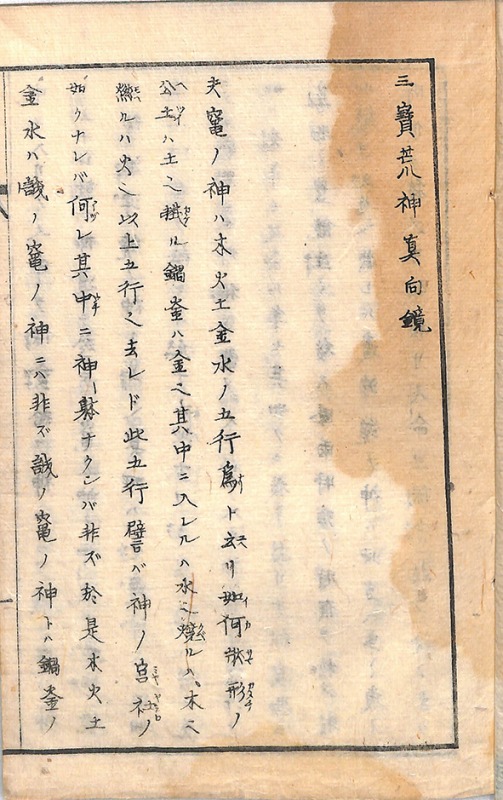 三寳荒神真向鏡
夫竃ノ神ハ木火土金水ノ五行為ト云リ如何状形ノ
公土ハ土也掛ル鍋釜ハ金也其中ニ入レルハ水也焼ルハ木也
燃ルハ火也以上五行也去レド此五行譬バ神ノ宮社ノ
如クナレバ何レ其中ニ神躰ナクンバ非ズ於是木火土
金水ハ誠ノ竃ノ神ニハ非ズ誠ノ竃ノ神トハ鍋釜ノ